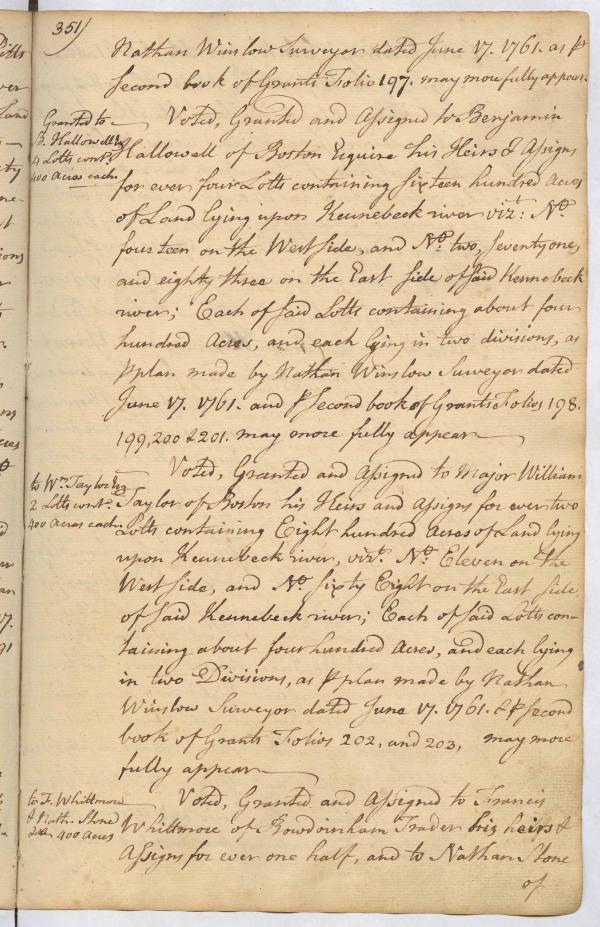 351/
Nathan Winslow Surveyor dated June 17. 1761. as ⅌
Second book of Grants Folio 197. may more fully appear.
Granted to
B. Hallowell Esq
4 Lotts cont.
400 Acres each.
Voted, Granted and Assigned to Benjamin
Hallowell of Boston Esquire his Heirs & Assigns
for ever four Lotts containing Sixteen hundred Acres
of Land lying upon Kennebeck river vizt: No.
fourteen on the West side, and No. two, seventy one,
and eighty three on the East side of said Kennebeck
river; Each of said Lotts containing about four
hundred Acres, and each lying in two divisions, as
⅌ plan made by Nathan Winslow Surveyor dated
June 17. 1761. and ⅌ Second book of Grants Folios 198.
199, 200 & 201. may more fully appear
to Wm. Taylor Esq
2 Lotts cont.
400 Acres each.
Voted, Granted and Assigned to Major William
Taylor of Boston his Heirs and Assigns for ever two
Lotts containing Eight hundred Acres of Land lying
upon Kennebeck river, vizt. No. Eleven on the
West side, and No. Sixty Eight on the East side
of said Kennebeck river; Each of said Lotts con-
taining about four hundred Acres, and each lying
in two Divisions, as ⅌ plan made by Nathan
Winslow Surveyor dated June 17. 1761. & ⅌ Second
book of Grants Folios 202, and 203, may more
fully appear
to F. Whittmore
& Nath. Stone
400 Acres
Voted, Granted and Assigned to Francis
Whittmore of Bowdoinham Trader his heirs &
Assigns for ever one half, and to Nathan Stone
of